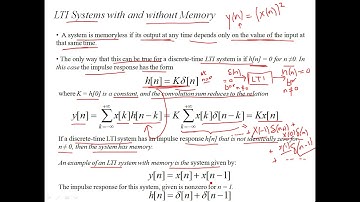 LTI Systems with and without Memory
y[n] = (x[n])²
• A system is memoryless if its output at any time depends only on the value of the input at
that same time.
• The only way that this can be true for a discrete-time LTI system is if h[n] = 0 for n≠0. In
this case the impulse response has the form
h[n] = Kδ[n]
δ[n] → LTI → h[n] = 0
for n≠0
where K = h[0] is a constant, and the convolution sum reduces to the relation
y[n] = ∑ x[k]h[n−k] = K ∑ x[k]δ[n−k] = Kx[n]
k=−∞ k=−∞
If a discrete-time LTI system has an impulse response h[n] that is not identically zero for
n ≠ 0, then the system has memory.
An example of an LTI system with memory is the system given by:
y[n] = x[n] + x[n−1]
The impulse response for this system, given is nonzero for n = 1.
h[n] = δ[n] + δ[n−1]